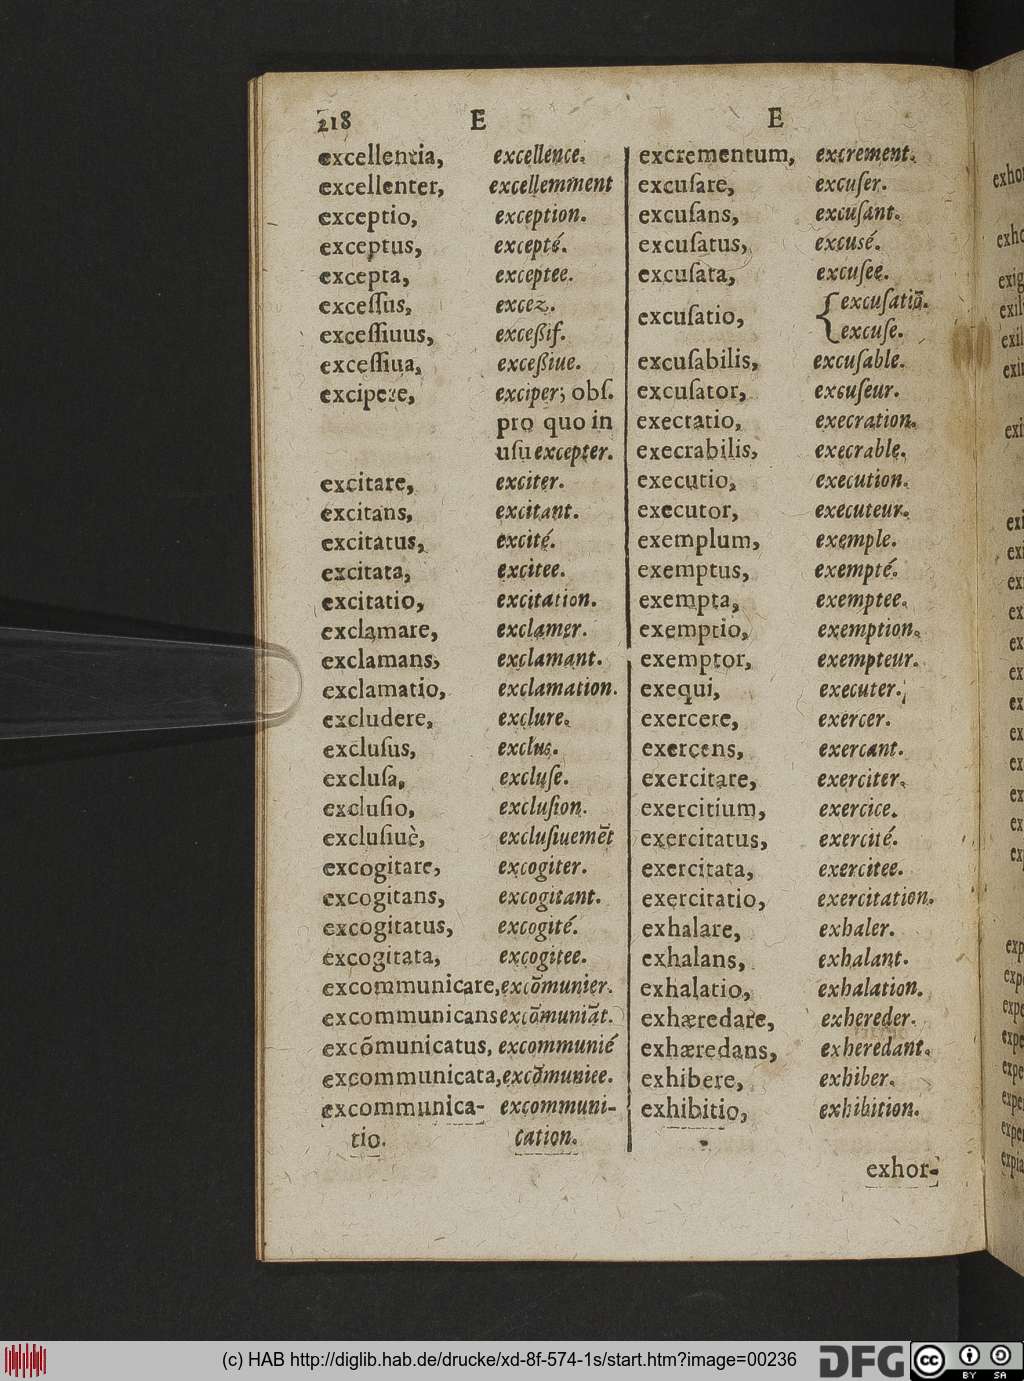 218 E E
excellentia, excellence.
excellenter, excellemment
exceptio, exception.
exceptus, excepté.
excepta, exceptee.
exceſſus, excez.
exceſſiuus, exceßif.
exceſſiua, exceßiue.
excipere, exciper; obſ.
pro quo in
uſu excepter.
excitare, exciter.
excitans, excitant.
excitatus, excité.
excitata, excitee.
excitatio, excitation.
exclamare, exclamer.
exclamans, exclamant.
exclamatio, exclamation.
excludere, exclure.
excluſus, exclus.
excluſa, excluſe.
excluſio, excluſion.
excluſiuè, excluſiuemēt
excogitare, excogiter.
excogitans, excogitant.
excogitatus, excogité.
excogitata, excogitee.
excommunicare, excōmunier.
excommunicans excōmuniāt.
excōmunicatus, excommunié
excommunicata, excōmuniee.
excommunica- excommuni-
tio. cation.
excrementum, excrement.
excuſare, excuſer.
excuſans, excuſant.
excuſatus, excusé.
excuſata, excuſee.
excuſatio, { excuſatiō.
excuſe.
excuſabilis, excuſable.
excuſator, excuſeur.
execratio, execration.
execrabilis, execrable.
executio, execution.
executor, executeur.
exemplum, exemple.
exemptus, exempté.
exempta, exemptee.
exemptio, exemption.
exemptor, exempteur.
exequi, executer.
exercere, exercer.
exercens, exercant.
exercitare, exerciter.
exercitium, exercice.
exercitatus, exercité.
exercitata, exercitee.
exercitatio, exercitation.
exhalare, exhaler.
exhalans, exhalant.
exhalatio, exhalation.
exhæredare, exhereder.
exhæredans, exheredant.
exhibere, exhiber.
exhibitio, exhibition.
exhor-
(c) HAB http://diglib.hab.de/drucke/xd-8f-574-1s/start.htm?image=00236
DFG cc BY SA